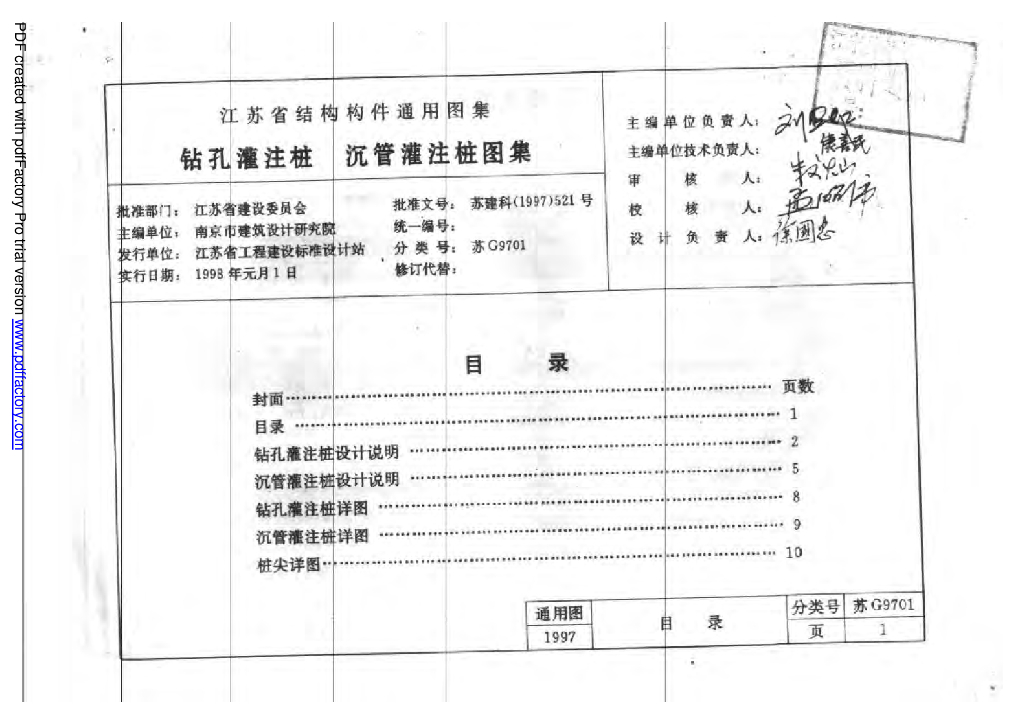 PDF created with pdfFactory Pro trial version www.pdffactory.com
江苏省结构构件通用图集
钻孔灌注桩 沉管灌注桩图集
批准部门：江苏省建设委员会 批准文号：苏建科(1997)521号
主编单位：南京市建筑设计研究院 统一编号：
发行单位：江苏省工程建设标准设计站 分类号：苏G9701
实行日期：1998年元月1日 修订代替：
主编单位负责人：
主编单位技术负责人：
审核人：
校核人：
设计负责人：徐国忠
目 录
封面 页数
目录 1
钻孔灌注桩设计说明 2
沉管灌注桩设计说明 5
钻孔灌注桩详图 8
沉管灌注桩详图 9
桩尖详图 10
通用图
1997
目 录
分类号 苏G9701
页 1